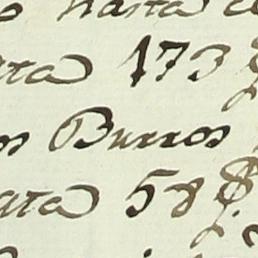 hasta
ta 173
os Burros
ata 58 $.